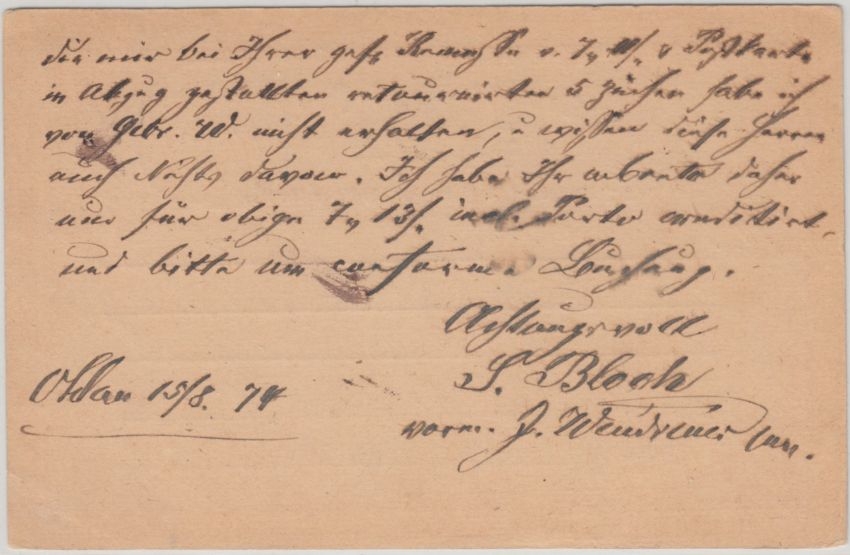 die mir bei Ihrer gef. Remesse v. 7, & Postkarte
in Abzug gestellten retournirten 5 habe ich
von Gebr. W. nicht erhalten, u wissen diese Herren
auch Nichts davon. Ich habe Ihr daher
nur für obige 7, 13/, incl. Porto creditirt,
und bitte um conforme Buchung.
Achtungsvoll
S. Bloch
vorm. J. Wendriner sen.
Ohlau 15/8. 74